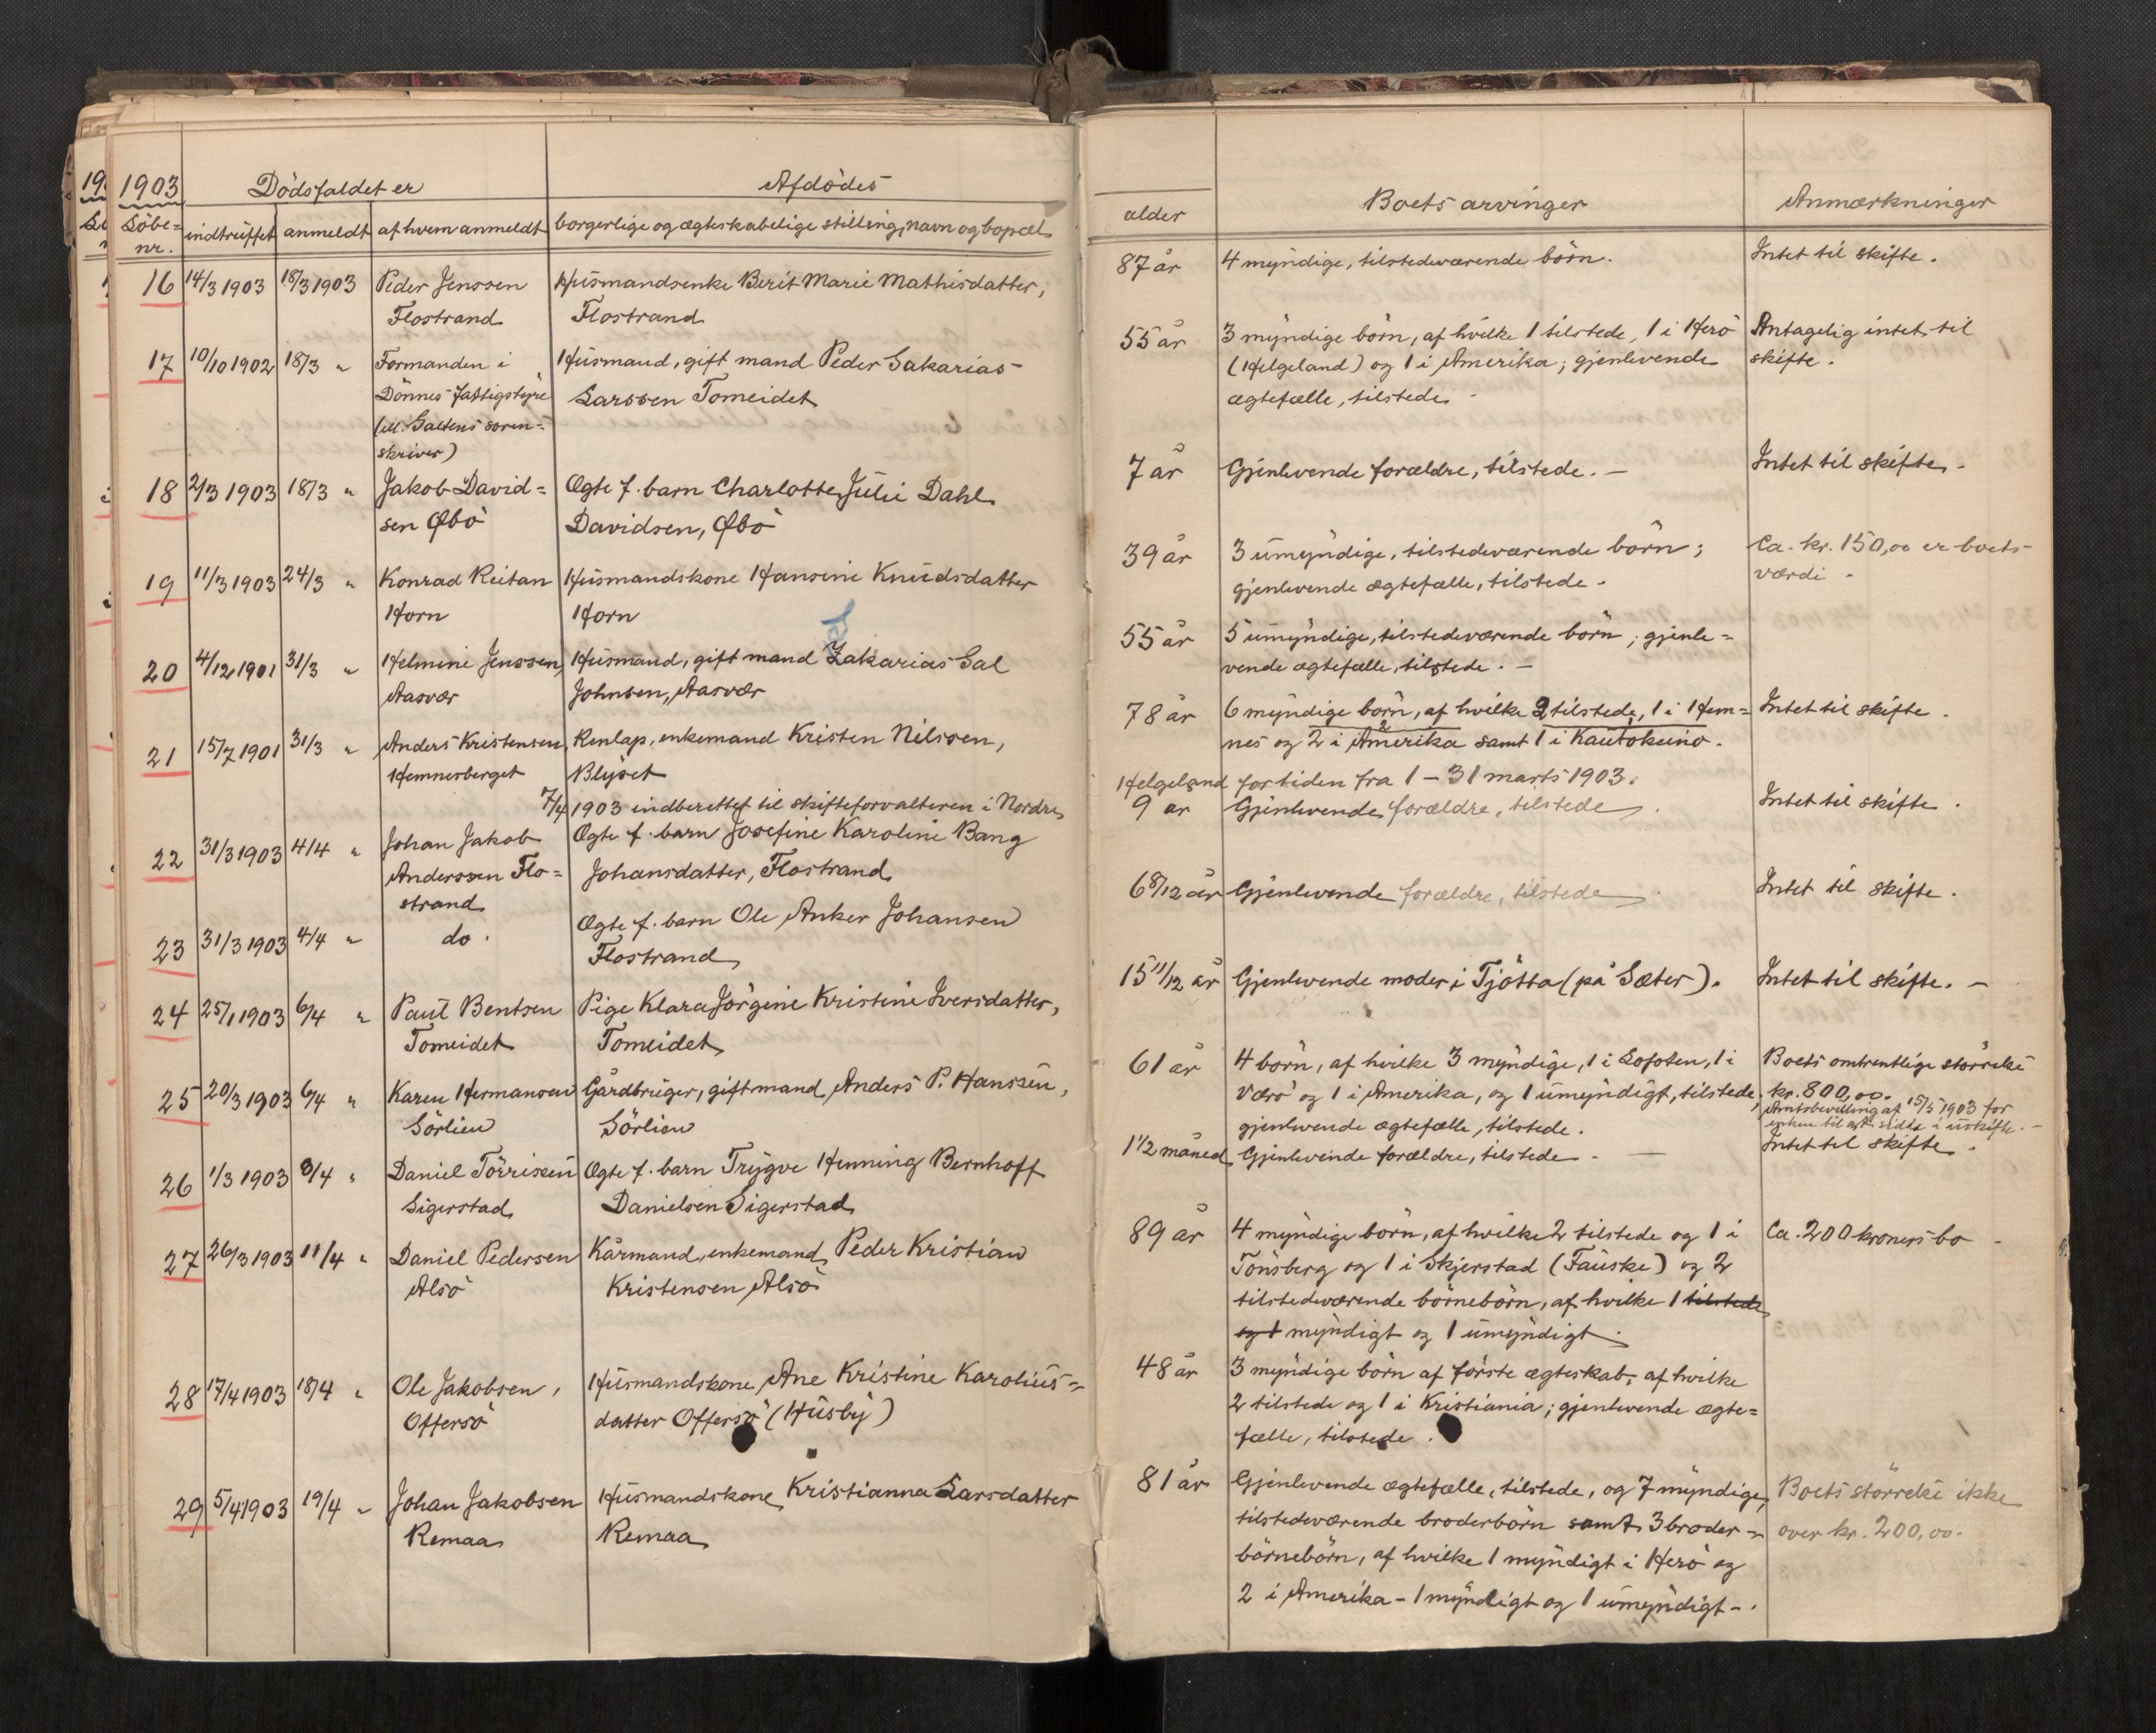 1903
Dödsfaldet er
Afdödes
Löbe=
nr.
indtruffet
anmeldt
af hvem anmeldt
borgerlige og ægteskabelige stilling, navn og bopæl
16 14/3 1903 18/3 1903 Peder Jenssen Husmandsenke Berit Marie Mathisdatter,
Flostrand Flostrand
17 10/10 1902 18/3 " Formanden i Husmand, gift mand Peder Sakarias
Dönnes fattigstyre Larssen Tomeidet
(ell. Saltens soren=
skriver)
18 2/3 1903 18/3 " Jakob David= Ægte f. barn Charlotte Julie Dahl
sen Øbö Davidsen, Øbö
19 11/3 1903 24/3 " Konrad Reitan Husmandskone Hansine Knudsdatter
Horn Horn
20 4/12 1901 31/3 " Helmine Jenssen, Husmand, gift mand Zakarias Sal
Aasvær Johnsen, Aasvær
21 15/7 1901 31/3 " Anders Kristensen, Renlap, enkemand Kristen Nilssen,
Hemnesberget Blyset
7/4 1903 indberettet til skifteforvalteren i Nordre
22 31/3 1903 4/4 " Johan Jakob Ægte f. barn Josefine Karoline Bang
Anderssen Flo= Johansdatter, Flostrand
strand
23 31/3 1903 4/4 " do. Ægte f. barn Ole Anker Johansen
Flostrand
24 25/1 1903 6/4 " Paul Bentsen Pige Klara Jörgine Kristine Iversdatter,
Tomeidet Tomeidet
25 20/3 1903 6/4 " Karen Hermansen Gårdbruger, gift mand Anders P. Hanssen,
Sörlien Sörlien
26 1/3 1903 8/4 " Daniel Törrissen Ægte f. barn Trygve Henning Bernhoff
Sigerstad Danielsen Sigerstad
27 26/3 1903 11/4 " Daniel Pedersen Kårmand, enkemand Peder Kristian
Alsö Kristensen Alsö
28 17/4 1903 18/4 " Ole Jakobsen, Husmandskone Ane Kristine Karolius=
Offersö datter Offersö (Husby)
29 5/4 1903 19/4 " Johan Jakobsen Husmandskone Kristianna Larsdatter
Remaa Remaa
alder
Boets arvinger
Anmærkninger
87 år 4 myndige, tilstedeværende börn. Intet til skifte.
55 år 3 myndige börn, af hvilke 1 tilstede, 1 i Herö Antagelig intet til
(Helgeland) og 1 i Amerika; gjenlevende skifte.
ægtefælle, tilstede
7 år Gjenlevende forældre, tilstede. — Intet til skifte.
39 år 3 umyndige, tilstedeværende börn; Ca. kr. 150,00 er boets
gjenlevende ægtefælle, tilstede. værdi.
55 år 5 umyndige, tilstedeværende börn; gjenle=
vende ægtefælle, tilstede. —
78 år 6 myndige börn, af hvilke 2 tilstede, 1 i Hem= Intet til skifte.
nes og 2 i Amerika samt 1 i Kautokeino.
Helgeland for tiden fra 1–31 marts 1903.
9 år Gjenlevende forældre, tilstede. Intet til skifte.
6 8/12 år Gjenlevende forældre, tilstede. Intet til skifte.
15 11/12 år Gjenlevende moder i Tjötta (på Sæter). Intet til skifte. —
61 år 4 börn, af hvilke 3 myndige, 1 i Lofoten, 1 i Boets omtrentlige störrelse
Værö og 1 i Amerika, og 1 umyndigt, tilstede; kr. 800,00.
Amtsbevilling af 15/5 1903 for
enken til at sidde i uskifte. —
gjenlevende ægtefælle, tilstede.
1 1/2 måned Gjenlevende forældre, tilstede. — Intet til skifte.
89 år 4 myndige börn, af hvilke 2 tilstede og 1 i Ca. 200 kroners bo.
Tönsberg og 1 i Skjerstad (Fauske) og 2
tilstedeværende börnebörn, af hvilke 1 tilstede
og 1 myndigt og 1 umyndigt.
48 år 3 myndige börn af förste ægteskab, af hvilke
2 tilstede og 1 i Kristiania; gjenlevende ægte=
fælle, tilstede.
81 år Gjenlevende ægtefælle, tilstede, og 7 myndige, Boets störrelse ikke
tilstedeværende broderbörn samt 3 broder= over kr. 200,00.
börnebörn, af hvilke 1 myndigt i Herö og
2 i Amerika – 1 myndigt og 1 umyndigt –.